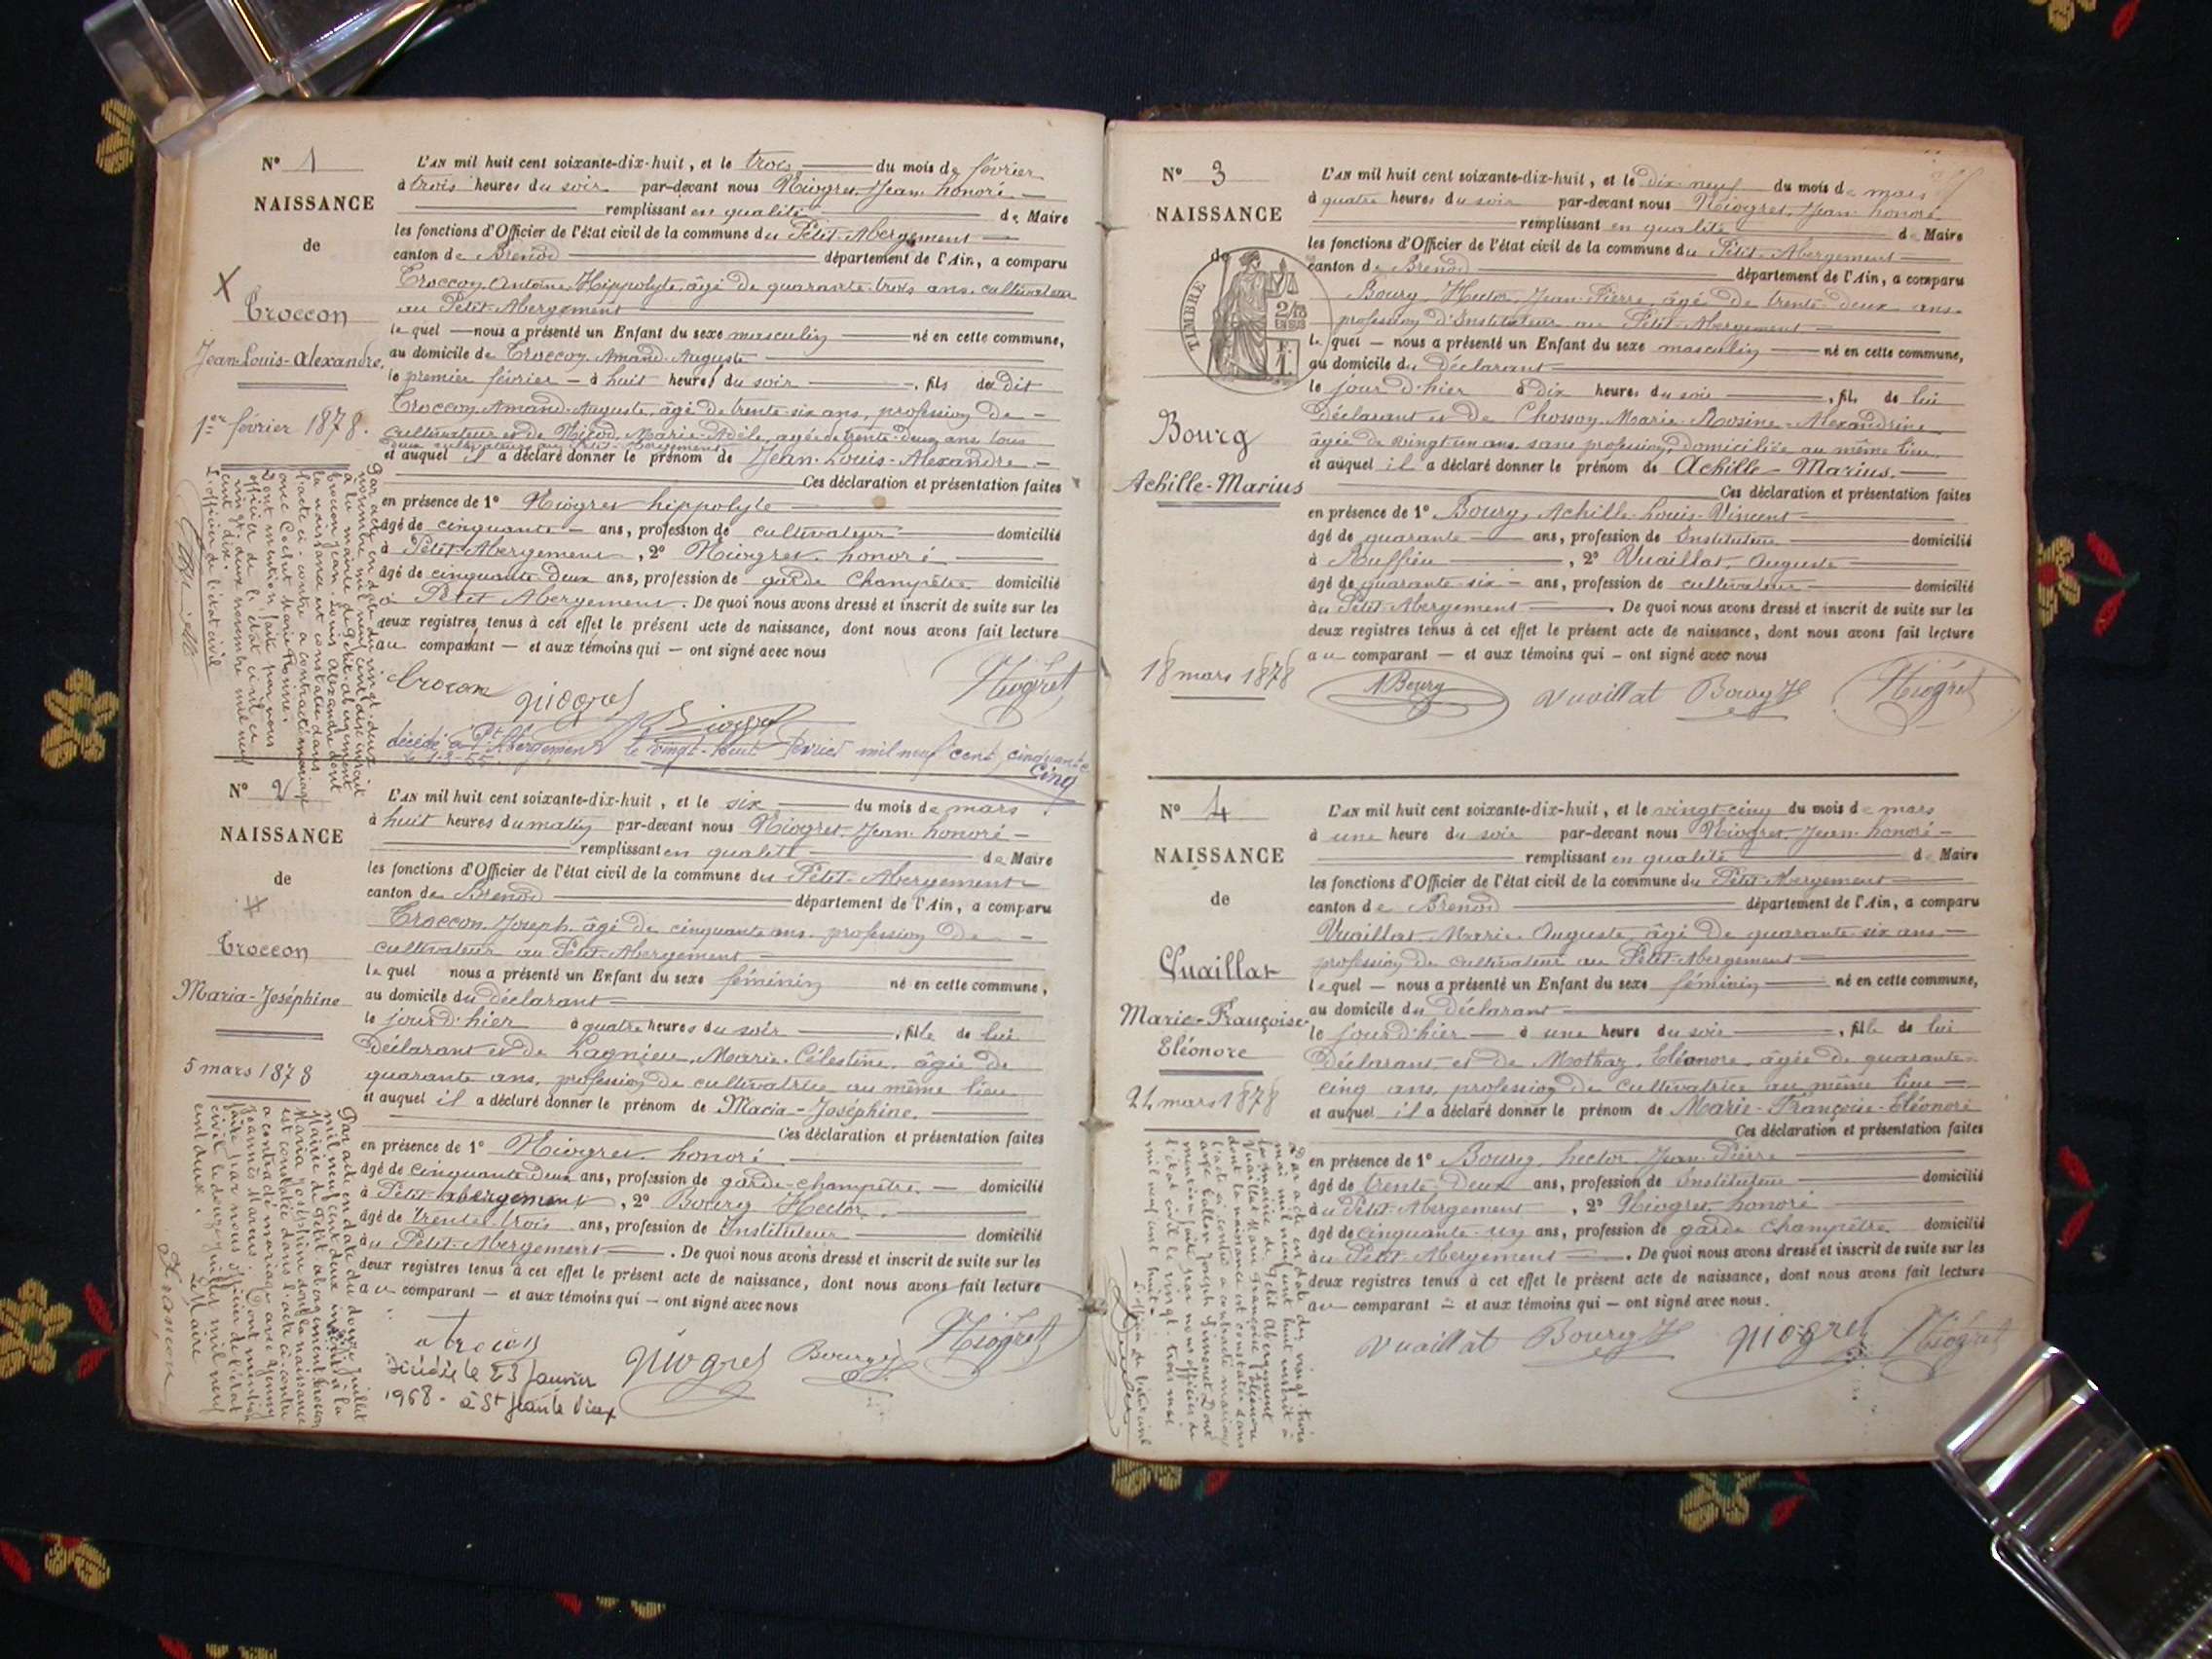 N° 1
NAISSANCE
de
Troccon
Jean-Louis-Alexandre.
1er février 1878.
L'AN mil huit cent soixante-dix-huit, et le trois du mois de février
à trois heures du soir par-devant nous Niogret, Jean honoré
remplissant en qualité de Maire
les fonctions d'Officier de l'état civil de la commune du Petit-Abergement
canton de Brenod département de l'Ain, a comparu
Troccon Antoine Hippolyte, âgé de quarante-trois ans, cultivateur
au Petit-Abergement
lequel nous a présenté un Enfant du sexe masculin né en cette commune,
au domicile de Troccon Amand-Auguste
le premier février à huit heures du soir, fils de dit
Troccon Amand-Auguste, âgé de trente-six ans, profession de
cultivateur et de Nicod, Marie-Adèle, agée de trente-deux ans tous
deux cultivateurs au Petit-Abergement
et auquel il a déclaré donner le prénom de Jean-Louis-Alexandre
Ces déclaration et présentation faites
en présence de 1° Niogret hippolyte
âgé de cinquante ans, profession de cultivateur domicilié
à Petit-Abergement, 2° Niogret honoré
âgé de cinquante deux ans, profession de garde Champêtre domicilié
à Petit Abergement. De quoi nous avons dressé et inscrit de suite sur les
deux registres tenus à cet effet le présent acte de naissance, dont nous avons fait lecture
au comparant et aux témoins qui ont signé avec nous
Par acte en date du vingt-deux
novembre mil neuf cent dix inscrit
à la mairie de Petit-Abergement
Troccon Jean-Louis Alexandre dont
la naissance est constatée dans
l'acte ci-contre a contracté mariage
avec Marie
Dont mention faite par nous
officier de l'état civil ce
vingt deux novembre mil neuf
cent dix.
L'officier de l'état civil
Troccon Niogret Niogret
décédé à Pt Abergement le vingt-huit février mil neuf cent cinquante
cinq
le 1-3-55
N° 2
NAISSANCE
de
Troccon
Maria-Joséphine
5 mars 1878
L'AN mil huit cent soixante-dix-huit, et le six du mois de mars
à huit heures du matin par-devant nous Niogret, Jean honoré
remplissant en qualité de Maire
les fonctions d'Officier de l'état civil de la commune du Petit-Abergement
canton de Brenod département de l'Ain, a comparu
Troccon, Joseph, âgé de cinquante ans, profession de
cultivateur au Petit-Abergement
lequel nous a présenté un Enfant du sexe féminin né en cette commune,
au domicile du déclarant
le jour d'hier à quatre heures du soir, fille de lui
déclarant et de Lagnieu, Marie-Célestine, âgée de
quarante ans, profession de cultivatrice au même lieu
et auquel il a déclaré donner le prénom de Maria-Joséphine.
Ces déclaration et présentation faites
en présence de 1° Niogret honoré
âgé de cinquante deux ans, profession de garde-champêtre domicilié
à Petit-abergement, 2° Bourg Hector
âgé de trente trois ans, profession de Instituteur domicilié
au Petit-Abergement. De quoi nous avons dressé et inscrit de suite sur les
deux registres tenus à cet effet le présent acte de naissance, dont nous avons fait lecture
au comparant et aux témoins qui ont signé avec nous
Par acte en date du douze juillet
mil neuf cent deux inscrit à la
Mairie de Petit abergement Troccon
Maria Joséphine dont la naissance
est constatée dans l'acte ci-contre
a contracté mariage avec
Joannès Marius. Dont mention
faite par nous officier de l'état
civil le douze juillet mil neuf
cent deux.
Le Maire
Niogret Bourg H Niogret
Décédée le 23 Janvier
1968 - à St Jean le Vieux
N° 3
NAISSANCE
de
TIMBRE
Bourg
Achille-Marius
18 mars 1878
L'AN mil huit cent soixante-dix-huit, et le dix-neuf du mois de mars
à quatre heures du soir par-devant nous Niogret, Jean honoré
remplissant en qualité de Maire
les fonctions d'Officier de l'état civil de la commune du Petit-Abergement
canton de Brenod département de l'Ain, a comparu
Bourg, Hector, Jean-Pierre, âgé de trente-deux ans
profession d'Instituteur au Petit-Abergement
lequel nous a présenté un Enfant du sexe masculin né en cette commune,
au domicile du déclarant
le jour d'hier à dix heures du soir, fils de lui
déclarant et de Chosson Marie-Rosine-Alexandrine
âgée de vingt un ans, sans profession, domiciliée au même lieu
et auquel il a déclaré donner le prénom de Achille-Marius.
Ces déclaration et présentation faites
en présence de 1° Bourg, Achille-Louis-Vincent
âgé de quarante ans, profession de Instituteur domicilié
à Ruffieu, 2° Vuaillat, Auguste
âgé de quarante-six ans, profession de cultivateur domicilié
au Petit-Abergement. De quoi nous avons dressé et inscrit de suite sur les
deux registres tenus à cet effet le présent acte de naissance, dont nous avons fait lecture
au comparant et aux témoins qui ont signé avec nous
ABourg Vuaillat Bourg H Niogret
N° 4
NAISSANCE
de
Vuaillat
Marie-Françoise
Eléonore
24 mars 1878
L'AN mil huit cent soixante-dix-huit, et le vingt-cinq du mois de mars
à une heure du soir par-devant nous Niogret, Jean honoré
remplissant en qualité de Maire
les fonctions d'Officier de l'état civil de la commune du Petit-Abergement
canton de Brenod département de l'Ain, a comparu
Vuaillat Marie Auguste âgé de quarante-six ans
profession de cultivateur au Petit-Abergement
lequel nous a présenté un Enfant du sexe féminin né en cette commune,
au domicile du déclarant
le jour d'hier à une heure du soir, fille de lui
déclarant et de Mottraz, Eléonore, âgée de quarante-
cinq ans, profession de cultivatrice au même lieu
et auquel il a déclaré donner le prénom de Marie-Françoise-Eléonore
Ces déclaration et présentation faites
en présence de 1° Bourg, hector Jean-Pierre
âgé de trente-deux ans, profession de Instituteur domicilié
au Petit-Abergement, 2° Niogret, honoré
âgé de cinquante-un ans, profession de garde Champêtre domicilié
au Petit-Abergement. De quoi nous avons dressé et inscrit de suite sur les
deux registres tenus à cet effet le présent acte de naissance, dont nous avons fait lecture
au comparant et aux témoins qui ont signé avec nous.
Par acte en date du vingt-trois
mai mil neuf cent huit inscrit à
la mairie de Petit Abergement
Vuaillat Marie Françoise Eléonore
dont la naissance est constatée dans
l'acte ci-contre a contracté mariage
avec Joseph Dont
mention faite par nous officier de
l'état civil le vingt-trois mai
mil neuf cent huit.
L'officier de l'état civil
Vuaillat Bourg H Niogret Niogret